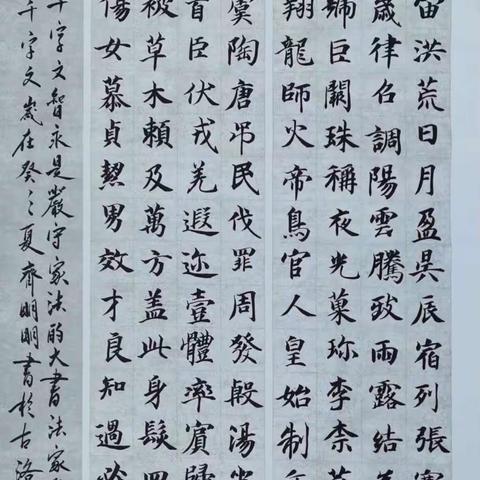 宙洪荒日月盈昃辰宿列張寒
歲律召調陽雲騰致雨露結為
號巨闕珠稱夜光菓珍李柰菜
翔龍師火帝鳥官人皇始制文
虞陶唐吊民伐罪周發殷湯坐
首臣伏戎羌遐迩壹體率賓歸
被草木賴及萬方盖此身髮四
傷女慕貞絜男效才良知過必
千字文智永是嚴守家法的大書法家
千字文歲在癸夏齊明明書於古洛